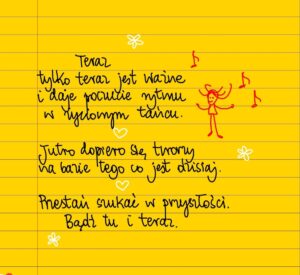 Teraz
tylko teraz jest ważne
i daje poczucie rytmu
w życiowym tańcu.
Jutro dopiero się tworzy
na bazie tego co jest dzisiaj.
Przestań szukać w przyszłości.
Bądź tu i teraz.